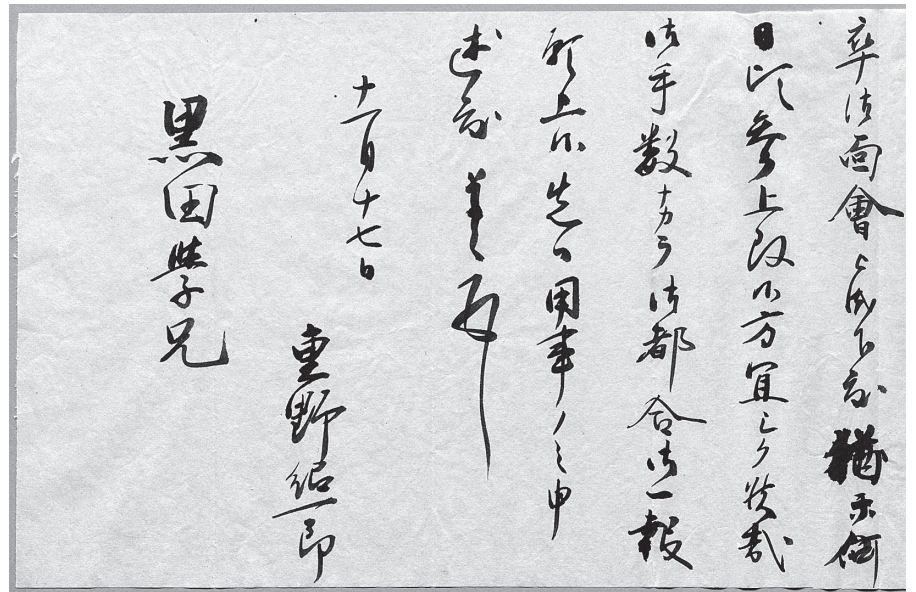 卒御面會被成下度猶亦何
日頃参上致候方宜シク候哉
御手数ナカラ御都合御一報
願上候先ハ用事ノミ申
述度草々
十一月十七日
重野紹一郎
黒田學兄